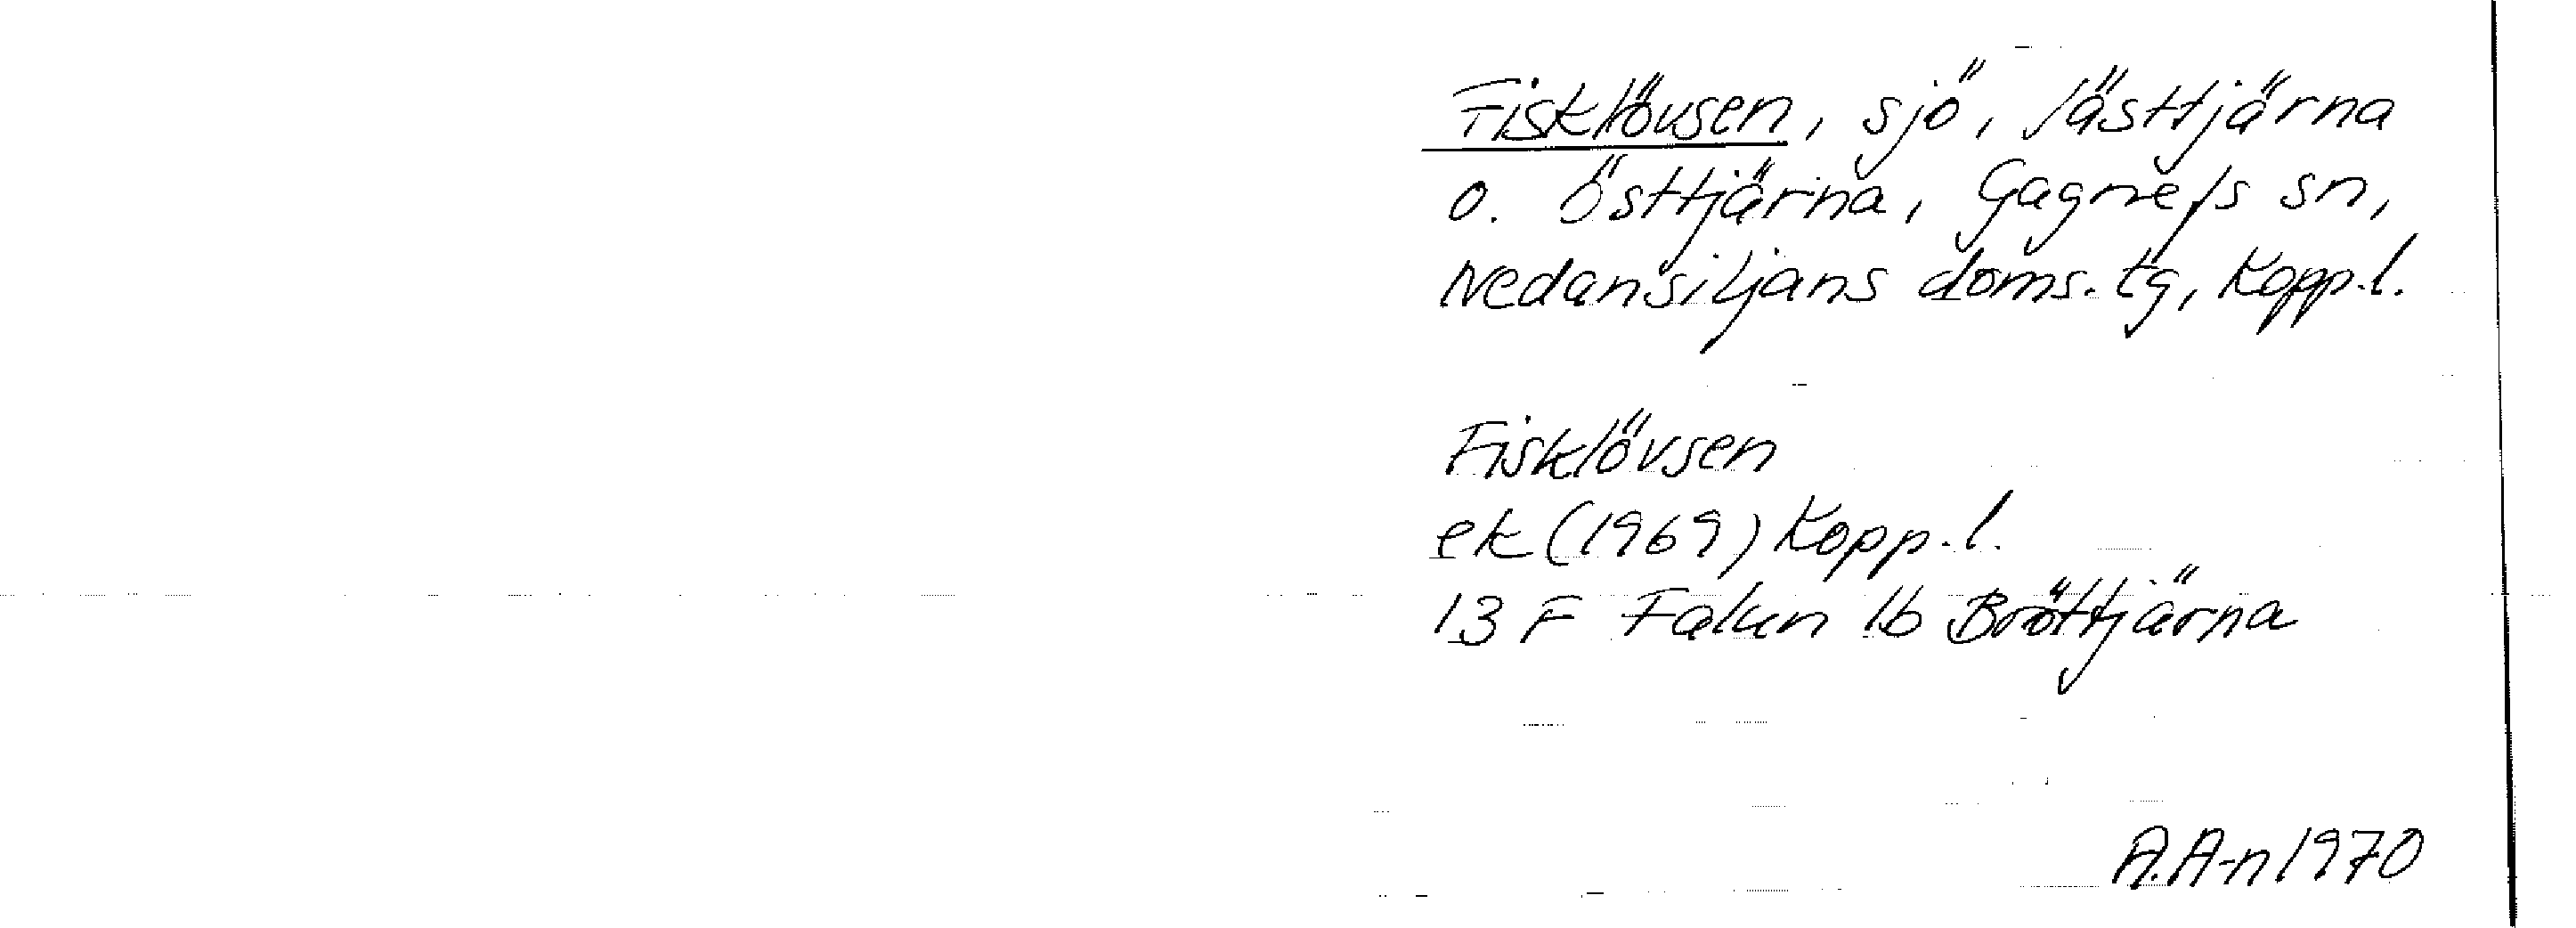 Fisklövsen, sjö, Västtjärna
o. Östtjärna, Gagnefs sn,
Nedansiljans doms. tg, Kopp.l.
Fisklövsen
ek (1969) Kopp.l.
13 F Falun 1b Bröttjärna
A.A-n 1970